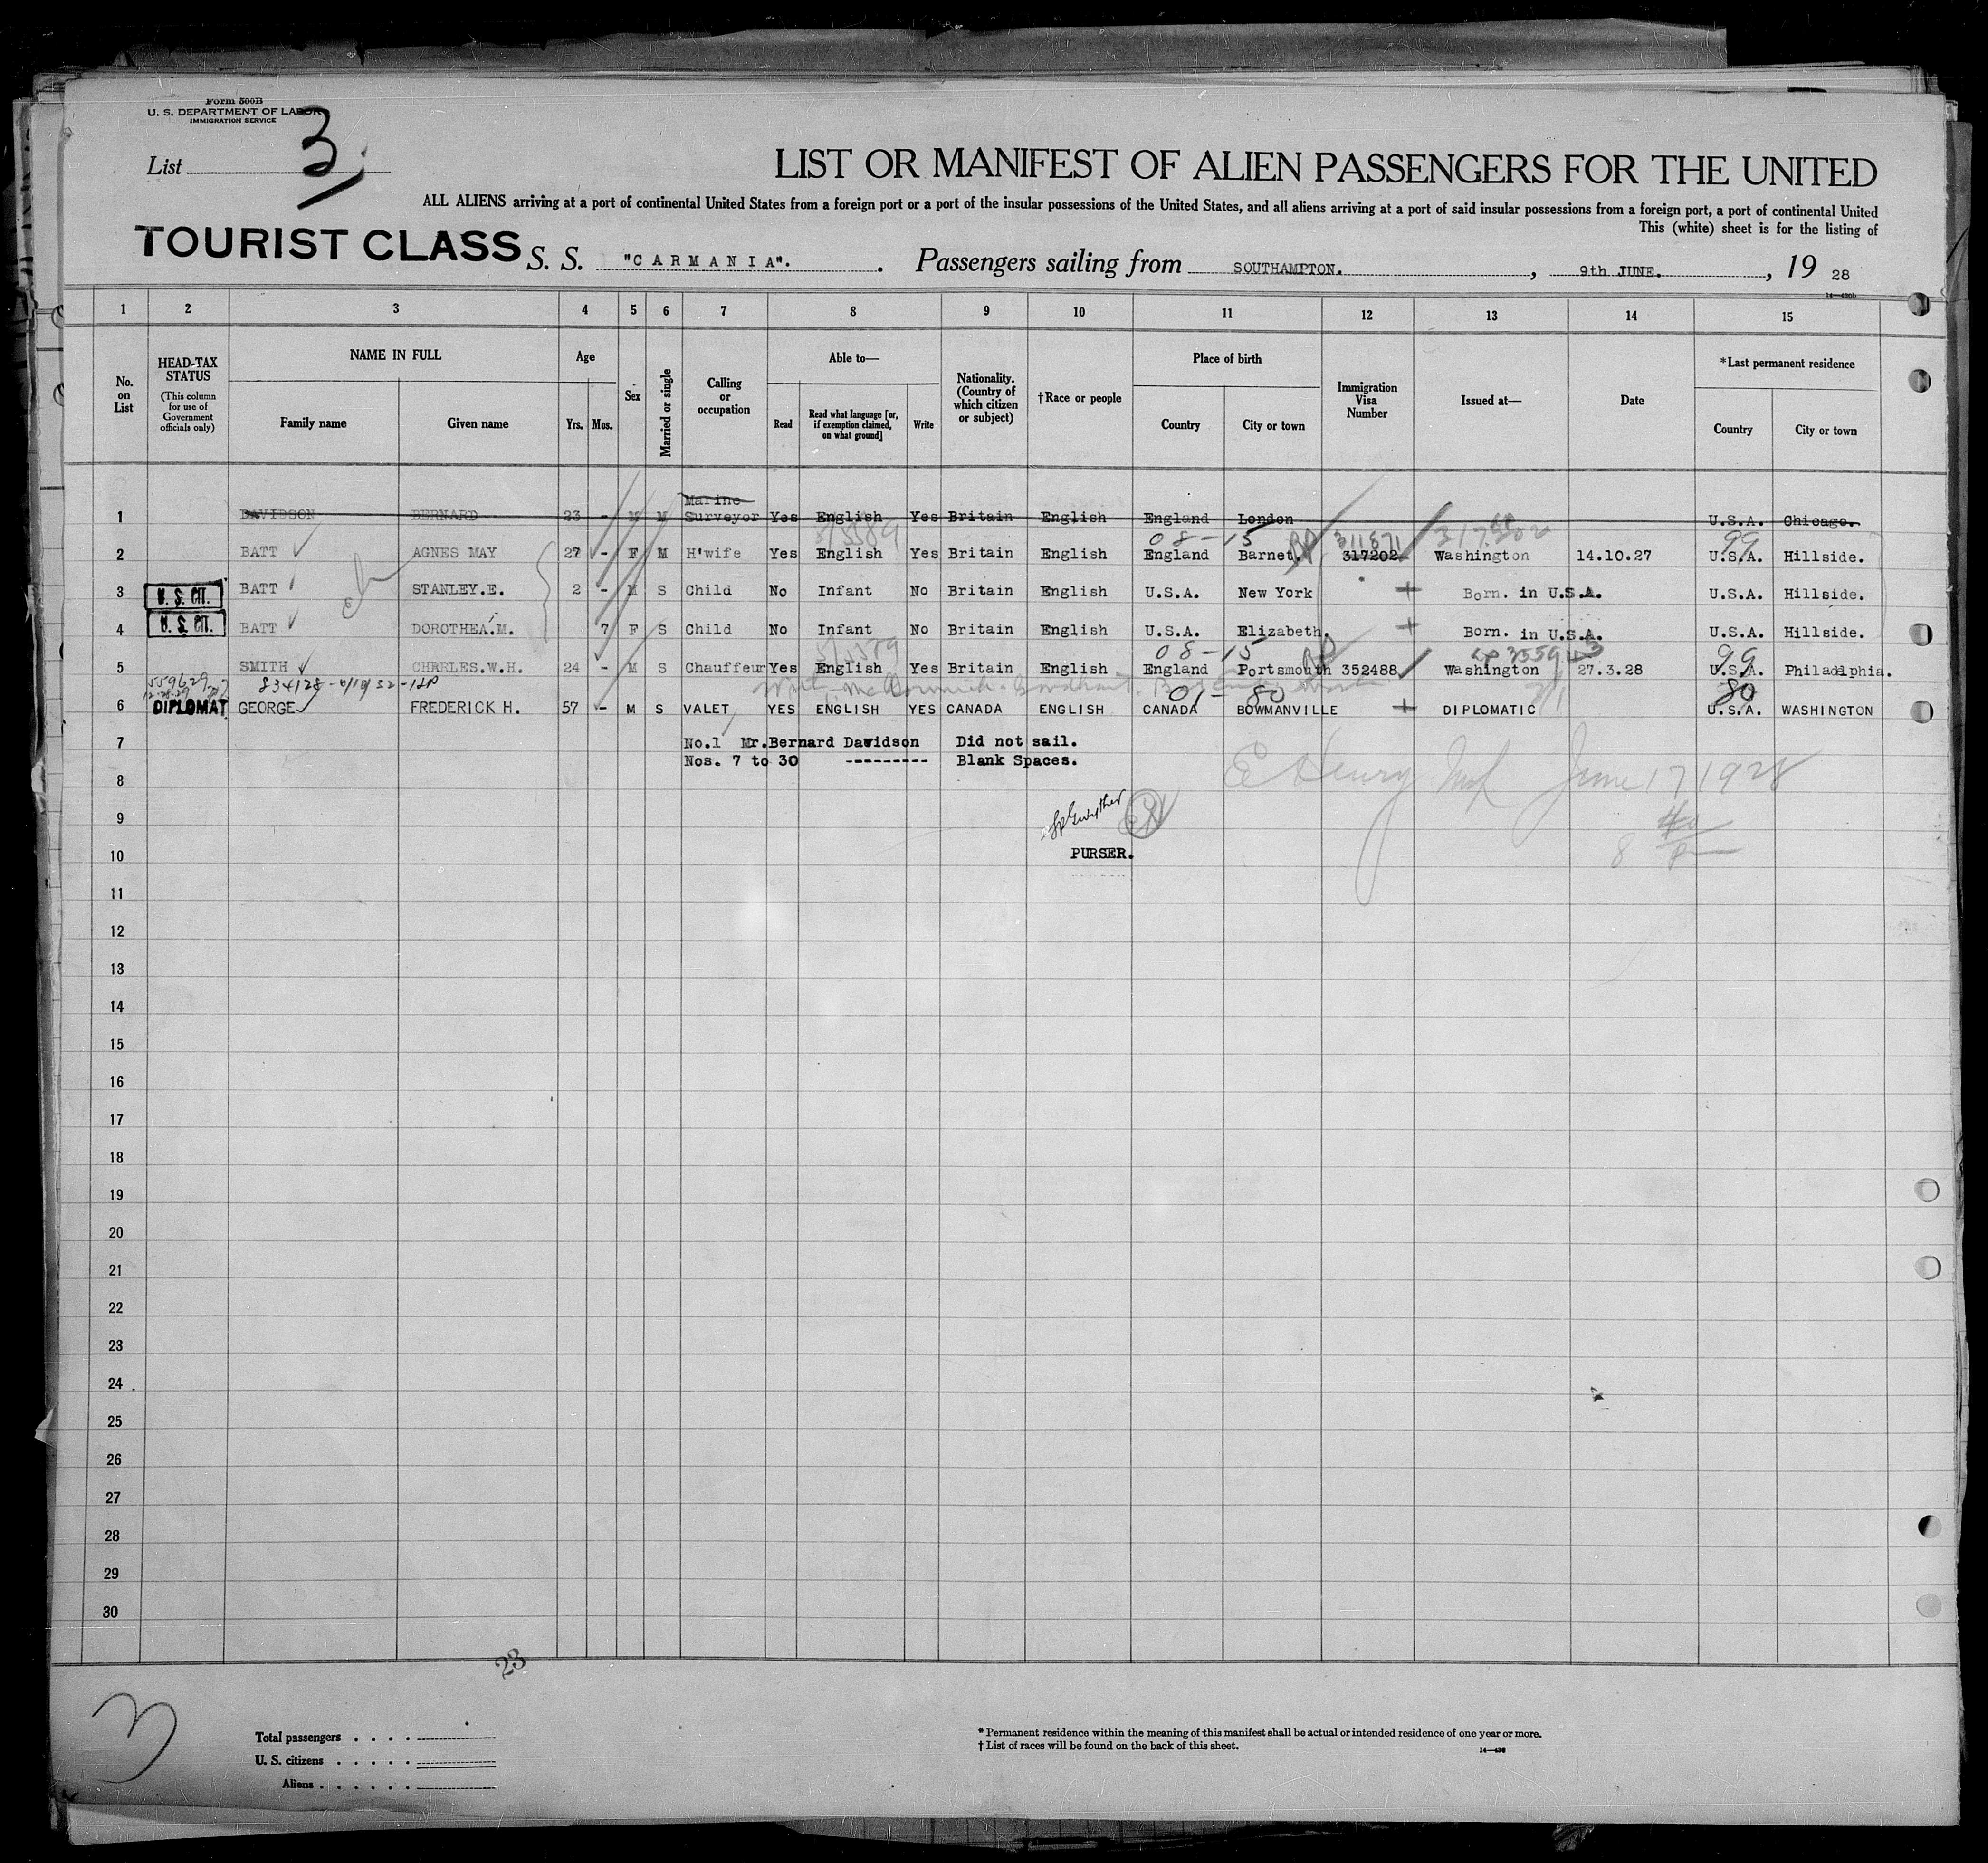 Form 500B
U. S. DEPARTMENT OF LABOR
IMMIGRATION SERVICE
List 3
LIST OR MANIFEST OF ALIEN PASSENGERS FOR THE UNITED
ALL ALIENS arriving at a port of continental United States from a foreign port or a port of the insular possessions of the United States, and all aliens arriving at a port of said insular possessions from a foreign port, a port of continental United
This (white) sheet is for the listing of
TOURIST CLASS S. S. "CARMANIA". Passengers sailing from SOUTHAMPTON., 9th JUNE., 19 28
1 2 3 4 5 6 7 8 9 10 11 12 13 14 15
No. on List
HEAD-TAX STATUS (This column for use of Government officials only)
NAME IN FULL Family name Given name
Age Yrs. Mos.
Sex
Married or single
Calling or occupation
Able to— Read Read what language [or, if exemption claimed, on what ground] Write
Nationality. (Country of which citizen or subject)
†Race or people
Place of birth Country City or town
Immigration Visa Number
Issued at—
Date
*Last permanent residence Country City or town
1 DAVIDSON BERNARD 23 - M M Marine Surveyor Yes English Yes Britain English England London U.S.A. Chicago.
08-15 311871 317202 99
2 BATT AGNES MAY 27 - F M H'wife Yes English Yes Britain English England Barnet. 317202 Washington 14.10.27 U.S.A. Hillside.
3 U.S. CIT. BATT STANLEY.E. 2 - M S Child No Infant No Britain English U.S.A. New York Born. in U.S.A. U.S.A. Hillside.
4 U.S. CIT. BATT DOROTHEA.M. 7 F S Child No Infant No Britain English U.S.A. Elizabeth. Born. in U.S.A. U.S.A. Hillside.
08-15 99
5 SMITH CHARLES.W.H. 24 - M S Chauffeur Yes English Yes Britain English England Portsmouth 352488 Washington 27.3.28 U.S.A. Philadelphia.
559629
01-80 80
6 DIPLOMAT GEORGE FREDERICK H. 57 - M S VALET YES ENGLISH YES CANADA ENGLISH CANADA BOWMANVILLE DIPLOMATIC U.S.A. WASHINGTON
7 No.1 Mr.Bernard Davidson Did not sail.
Nos. 7 to 30 --------- Blank Spaces.
8 E Henry Insp June 17 1928
9
10 PURSER.
11
12
13
14
15
16
17
18
19
20
21
22
23
24
25
26
27
28
29
30
23
3
Total passengers
U. S. citizens
Aliens
* Permanent residence within the meaning of this manifest shall be actual or intended residence of one year or more.
† List of races will be found on the back of this sheet.